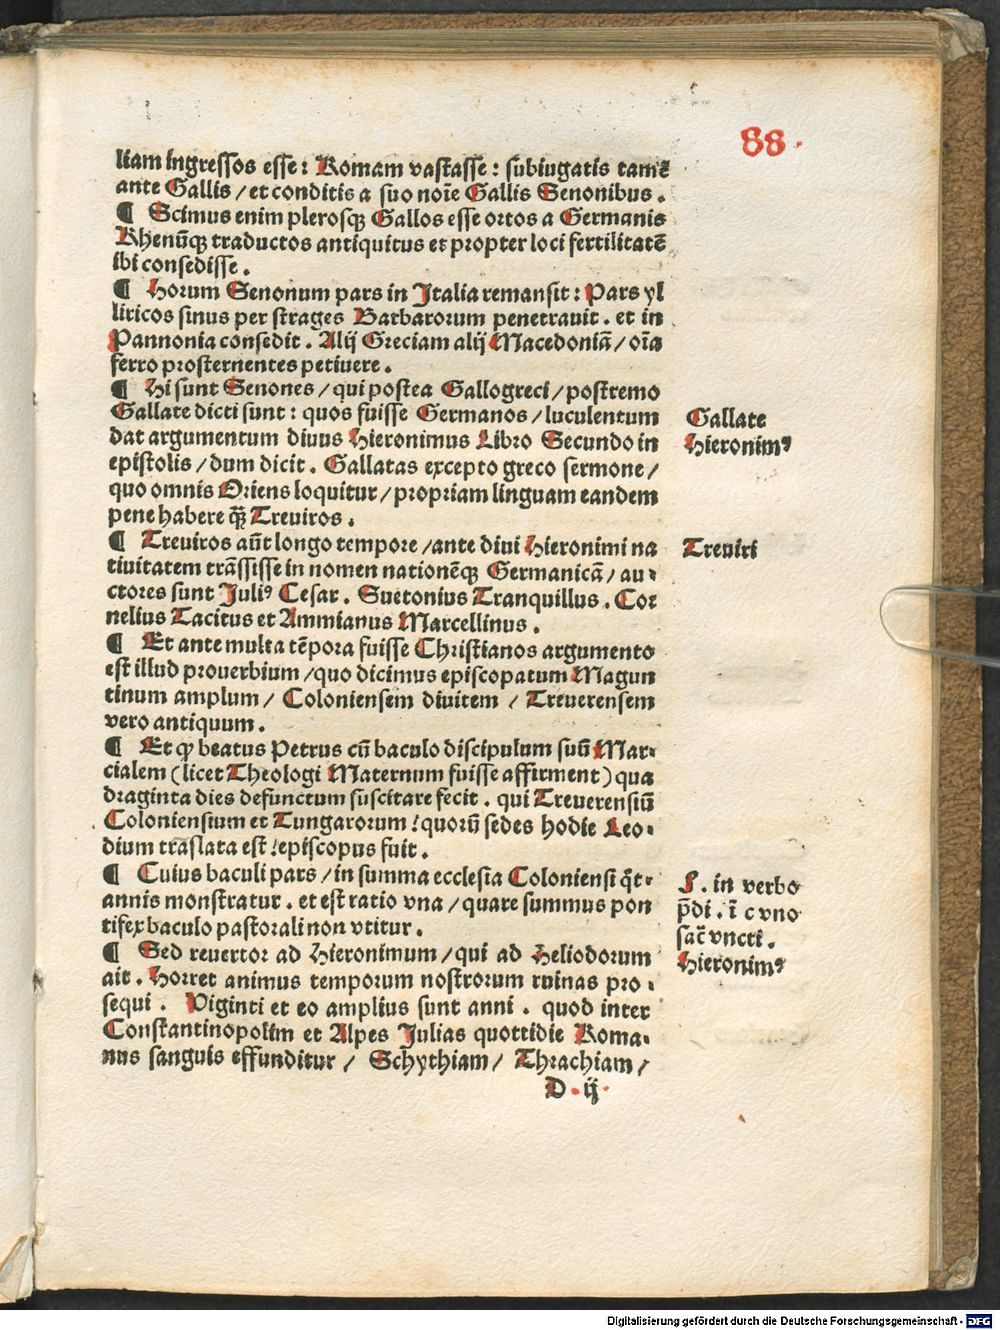 88.
liam ingressos esse: Romam vastasse: subiugatis tamē
ante Gallis / et conditis a suo noīe Gallis Senonibus.
¶ Scimus enim plerosqꝫ Gallos esse ortos a Germanis
Rhenūqꝫ traductos antiquitus et propter loci fertilitatē
ibi consedisse.
¶ Horum Senonum pars in Italia remansit: Pars yl
liricos sinus per strages Barbarorum penetrauit. et in
Pannonia consedit. Alij Greciam alij Macedoniā / oīa
ferro prosternentes petiuere.
¶ Hi sunt Senones / qui postea Gallogreci / postremo
Gallate dicti sunt: quos fuisse Germanos / luculentum
dat argumentum diuus Hieronimus Libro Secundo in
epistolis / dum dicit. Gallatas excepto greco sermone /
quo omnis Oriens loquitur / propriam linguam eandem
pene habere qꝫ̄ Treuiros.
¶ Treuiros aūt longo tempore / ante diui Hieronimi na
tiuitatem trāssisse in nomen nationēqꝫ Germanicā / au-
ctores sunt Juliꝰ Cesar. Suetonius Tranquillus. Cor
nelius Tacitus et Ammianus Marcellinus.
¶ Et ante multa tēpora fuisse Christianos argumento
est illud prouerbium / quo dicimus episcopatum Magun
tinum amplum / Coloniensem diuitem / Treuerensem
vero antiquum.
¶ Et ꝙ beatus Petrus cū baculo discipulum suū Mar-
cialem (licet Theologi Maternum fuisse affirment) qua
draginta dies defunctum suscitare fecit. qui Treuerensiū
Coloniensium et Tungarorum / quorū sedes hodie Leo-
dium trāslata est / episcopus fuit.
¶ Cuius baculi pars / in summa ecclesia Coloniensi qt̄-
annis monstratur. et est ratio vna / quare summus pon
tifex baculo pastorali non vtitur.
¶ Sed reuertor ad Hieronimum / qui ad Heliodorum
ait. Horret animus temporum nostrorum ruinas pro-
sequi. Viginti et eo amplius sunt anni. quod inter
Constantinopolim et Alpes Julias quottidie Roma-
nus sanguis effunditur / Schythiam / Thrachiam /
D.ij.
Gallate
Hieronimꝰ
Treuiri
S. in verbo
p̄di. ī c vno
sac̄ vncti.
Hieronimꝰ
Digitalisierung gefördert durch die Deutsche Forschungsgemeinschaft - DFG